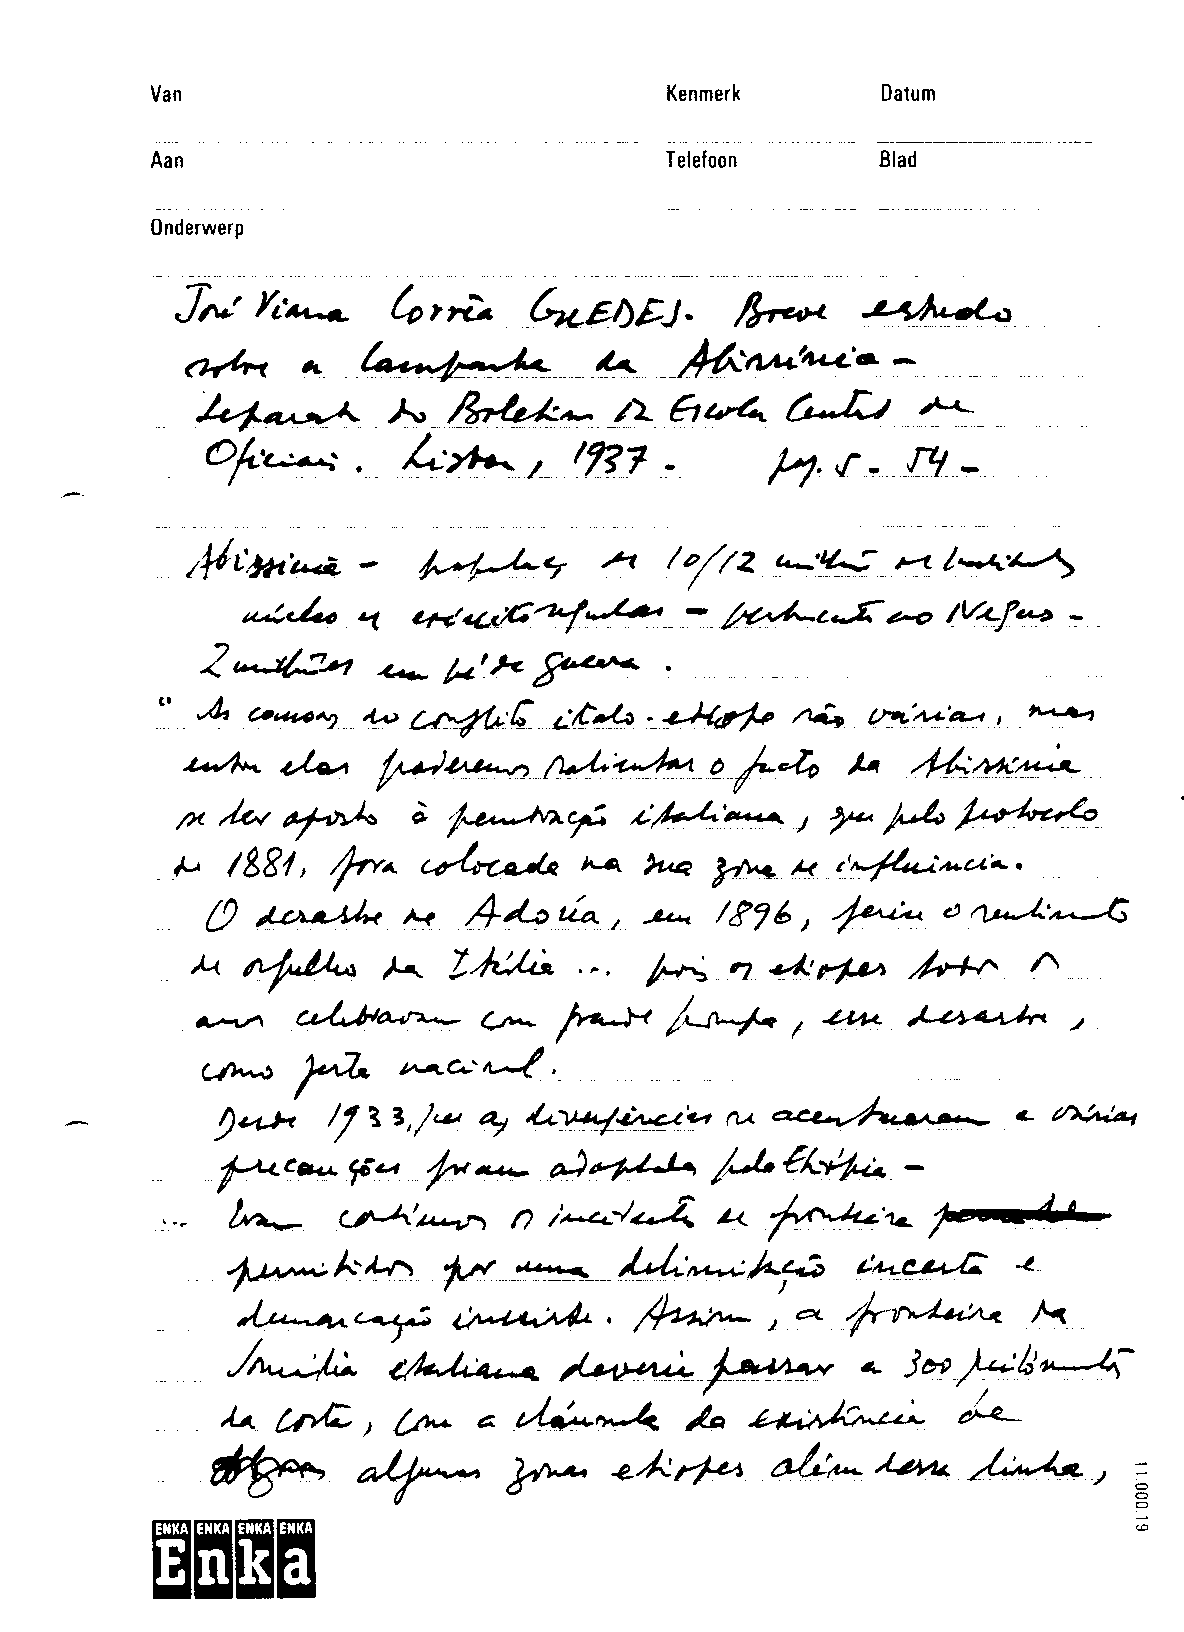 Van Kenmerk Datum
Aan Telefoon Blad
Onderwerp
José Viana Corrêa GUEDES. Breve estudo
sobre a Campanha da Abissínia -
Separata do Boletim da Escola Central de
Oficiais. Lisboa, 1937. pag. 5 - 54 -
Abissinia - populaç de 10/12 milhões de habitantes
núcleo de exército regular - pertencente ao Negus -
2 milhões em pé de guerra.
" As causas do conflito italo-etíope são várias, mas
entre elas poderemos salientar o facto da Abissinia
se ter oposto à penetração italiana, que pelo protocolo
de 1881, fora colocada na sua zona de influência.
O desastre de Adoúa, em 1896, feriu o sentimento
de orgulho da Itália ... pois os etiopes todos os
anos celebravam com grande pompa, esse desastre,
como festa nacional.
Desde 1933, que as divergências se acentuaram e várias
precauções foram adoptadas pela Ethiópia -
... Eram contínuos os incidentes de fronteira
permitidos por uma delimitação incerta e
demarcação inexistente. Assim, a fronteira da
Somália italiana deveria passar a 300 quilómetros
da costa, com a cláusula da existência de
algumas zonas etiopes além dessa linha,
11.000.19
ENKA ENKA ENKA ENKA
Enka